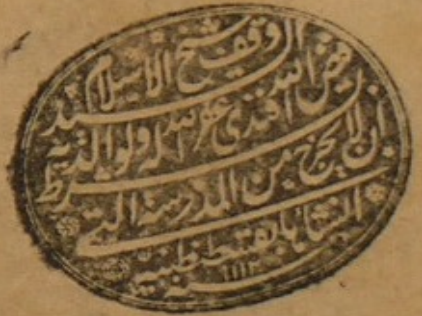 وقف شيخ الاسلام السيد
فيض الله افندى غفر الله له ولوالديه
بشرط ان لا يخرج من المدرسة التى
انشاها بقسطنطنيه
سنه ١١١٢